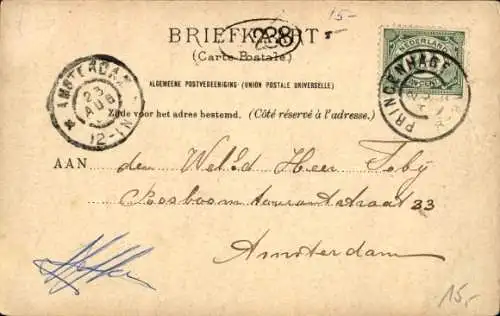 15-
BRIEFKAART
288
(Carte Postale)
ALGEMEENE POSTVEREENIGING (UNION POSTALE UNIVERSELLE)
Zijde voor het adres bestemd. (Côté réservé à l'adresse.)
NEDERLAND
PRINCENHAGE
AMSTERDAM
23
AUG
12-1N
AAN den Wel.Ed Heer Toby
Bosboom Toussaintstraat 33
Amsterdam
15,-